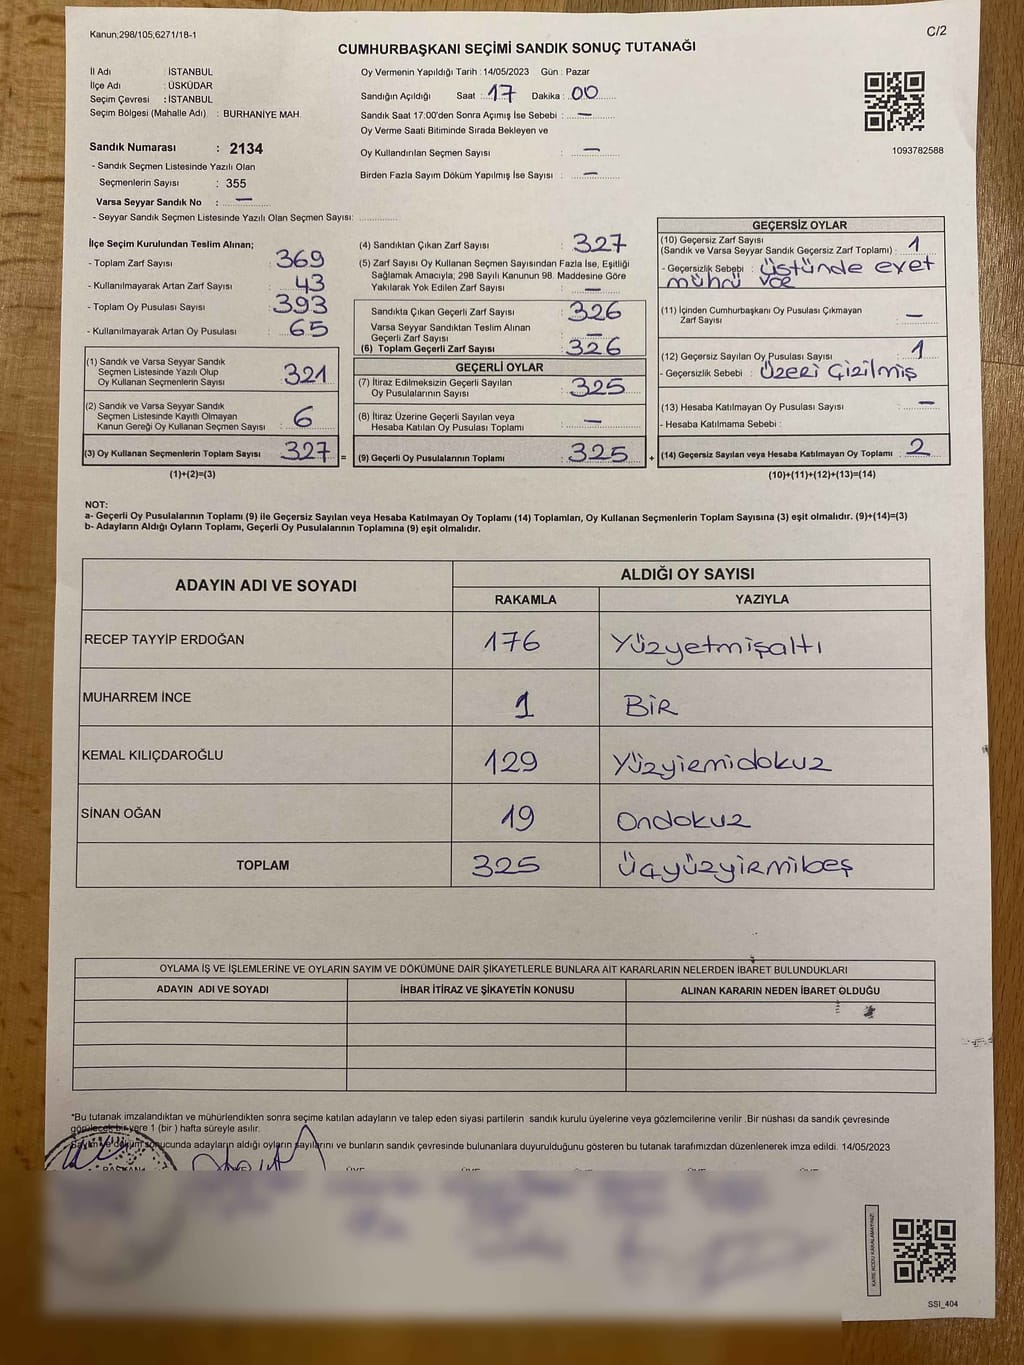 Kanun;298/105,6271/18-1
C/2
CUMHURBAŞKANI SEÇİMİ SANDIK SONUÇ TUTANAĞI
İl Adı : İSTANBUL
İlçe Adı : ÜSKÜDAR
Seçim Çevresi : İSTANBUL
Seçim Bölgesi (Mahalle Adı) : BURHANİYE MAH.
Sandık Numarası : 2134
- Sandık Seçmen Listesinde Yazılı Olan
Seçmenlerin Sayısı : 355
Varsa Seyyar Sandık No : —
- Seyyar Sandık Seçmen Listesinde Yazılı Olan Seçmen Sayısı: ..............
Oy Vermenin Yapıldığı Tarih : 14/05/2023 Gün : Pazar
Sandığın Açıldığı Saat : 17 Dakika : 00
Sandık Saat 17:00'den Sonra Açımış İse Sebebi : —
Oy Verme Saati Bitiminde Sırada Bekleyen ve
Oy Kullandırılan Seçmen Sayısı : —
Birden Fazla Sayım Döküm Yapılmış İse Sayısı : —
1093782588
İlçe Seçim Kurulundan Teslim Alınan;
- Toplam Zarf Sayısı : 369
- Kullanılmayarak Artan Zarf Sayısı : 43
- Toplam Oy Pusulası Sayısı : 393
- Kullanılmayarak Artan Oy Pusulası : 65
(1) Sandık ve Varsa Seyyar Sandık
Seçmen Listesinde Yazılı Olup
Oy Kullanan Seçmenlerin Sayısı : 321
(2) Sandık ve Varsa Seyyar Sandık
Seçmen Listesinde Kayıtlı Olmayan
Kanun Gereği Oy Kullanan Seçmen Sayısı : 6
(3) Oy Kullanan Seçmenlerin Toplam Sayısı : 327 =
(1)+(2)=(3)
(4) Sandıktan Çıkan Zarf Sayısı : 327
(5) Zarf Sayısı Oy Kullanan Seçmen Sayısından Fazla İse, Eşitliği
Sağlamak Amacıyla; 298 Sayılı Kanunun 98. Maddesine Göre
Yakılarak Yok Edilen Zarf Sayısı : —
Sandıkta Çıkan Geçerli Zarf Sayısı : 326
Varsa Seyyar Sandıktan Teslim Alınan
Geçerli Zarf Sayısı : —
(6) Toplam Geçerli Zarf Sayısı : 326
GEÇERLİ OYLAR
(7) İtiraz Edilmeksizin Geçerli Sayılan
Oy Pusulalarının Sayısı : 325
(8) İtiraz Üzerine Geçerli Sayılan veya
Hesaba Katılan Oy Pusulası Toplamı : —
(9) Geçerli Oy Pusulalarının Toplamı : 325 +
GEÇERSİZ OYLAR
(10) Geçersiz Zarf Sayısı : 1
(Sandık ve Varsa Seyyar Sandık Geçersiz Zarf Toplamı)
- Geçersizlik Sebebi : üstünde evet
mührü var
(11) İçinden Cumhurbaşkanı Oy Pusulası Çıkmayan
Zarf Sayısı : —
(12) Geçersiz Sayılan Oy Pusulası Sayısı : 1
- Geçersizlik Sebebi : Üzeri Çizilmiş
(13) Hesaba Katılmayan Oy Pusulası Sayısı : —
- Hesaba Katılmama Sebebi :
(14) Geçersiz Sayılan veya Hesaba Katılmayan Oy Toplamı : 2
(10)+(11)+(12)+(13)=(14)
NOT:
a- Geçerli Oy Pusulalarının Toplamı (9) ile Geçersiz Sayılan veya Hesaba Katılmayan Oy Toplamı (14) Toplamları, Oy Kullanan Seçmenlerin Toplam Sayısına (3) eşit olmalıdır. (9)+(14)=(3)
b- Adayların Aldığı Oyların Toplamı, Geçerli Oy Pusulalarının Toplamına (9) eşit olmalıdır.
ADAYIN ADI VE SOYADI
ALDIĞI OY SAYISI
RAKAMLA YAZIYLA
RECEP TAYYİP ERDOĞAN 176 Yüzyetmişaltı
MUHARREM İNCE 1 BİR
KEMAL KILIÇDAROĞLU 129 Yüzyirmidokuz
SİNAN OĞAN 19 Ondokuz
TOPLAM 325 Üçyüzyirmibeş
OYLAMA İŞ VE İŞLEMLERİNE VE OYLARIN SAYIM VE DÖKÜMÜNE DAİR ŞİKAYETLERLE BUNLARA AİT KARARLARIN NELERDEN İBARET BULUNDUKLARI
ADAYIN ADI VE SOYADI İHBAR İTİRAZ VE ŞİKAYETİN KONUSU ALINAN KARARIN NEDEN İBARET OLDUĞU
*Bu tutanak imzalandıktan ve mühürlendikten sonra seçime katılan adayların ve talep eden siyasi partilerin sandık kurulu üyelerine veya gözlemcilerine verilir .Bir nüshası da sandık çevresinde
görülecek bir yere 1 (bir ) hafta süreyle asılır.
Sayım ve döküm sonucunda adayların aldığı oyların sayılarını ve bunların sandık çevresinde bulunanlara duyurulduğunu gösteren bu tutanak tarafımızdan düzenlenerek imza edildi. 14/05/2023
BAŞKAN
KARE KODU KARALAMAYINIZ!
SSI_404